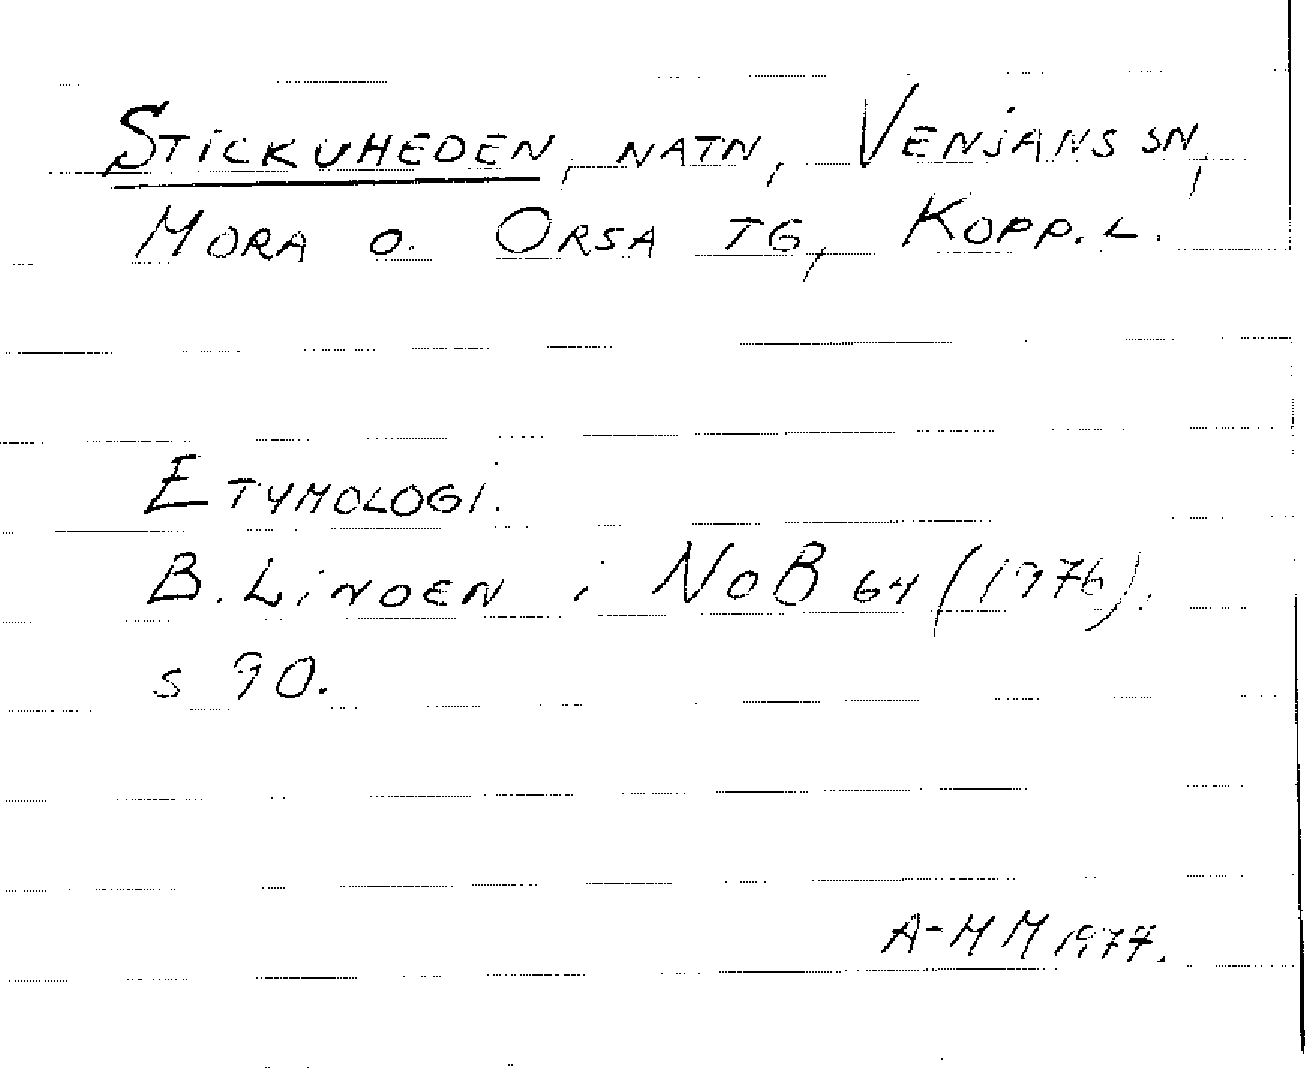 STICKUHEDEN, NATN, VENJANS SN,
MORA O. ORSA TG, KOPP. L.
ETYMOLOGI.
B. LINDEN i NoB 64 (1976).
s 90.
A-MM 1977.